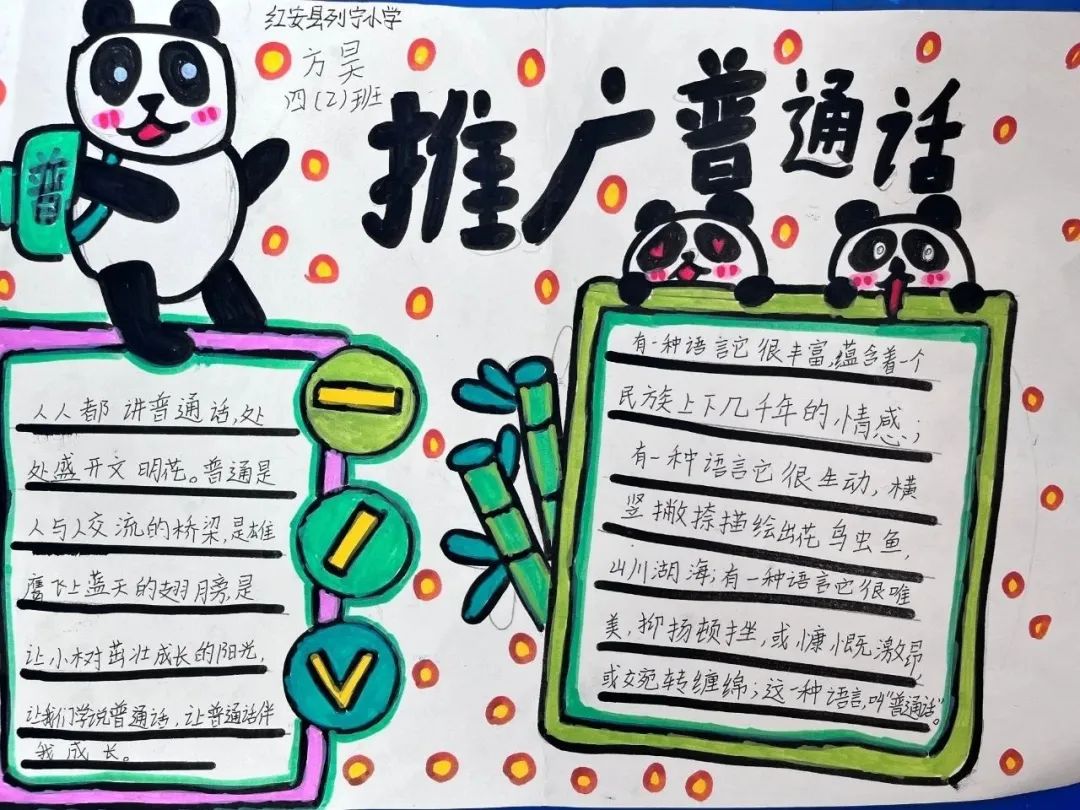 红安县列宁小学
方昊
四(2)班
推广普通话
普
人人都讲普通话,处
处盛开文明花。普通是
人与人交流的桥梁,是雄
鹰飞上蓝天的翅膀,是
让小树茁壮成长的阳光,
让我们学说普通话,让普通话伴
我成长。
有一种语言它很丰富,蕴含着一个
民族上下几千年的,情感;
有一种语言它很生动,横
竖撇捺描绘出花鸟虫鱼,
山川湖海;有一种语言它很唯
美,抑扬顿挫,或慷慨激昂
或婉转缠绵;这一种语言,叫“普通话”。